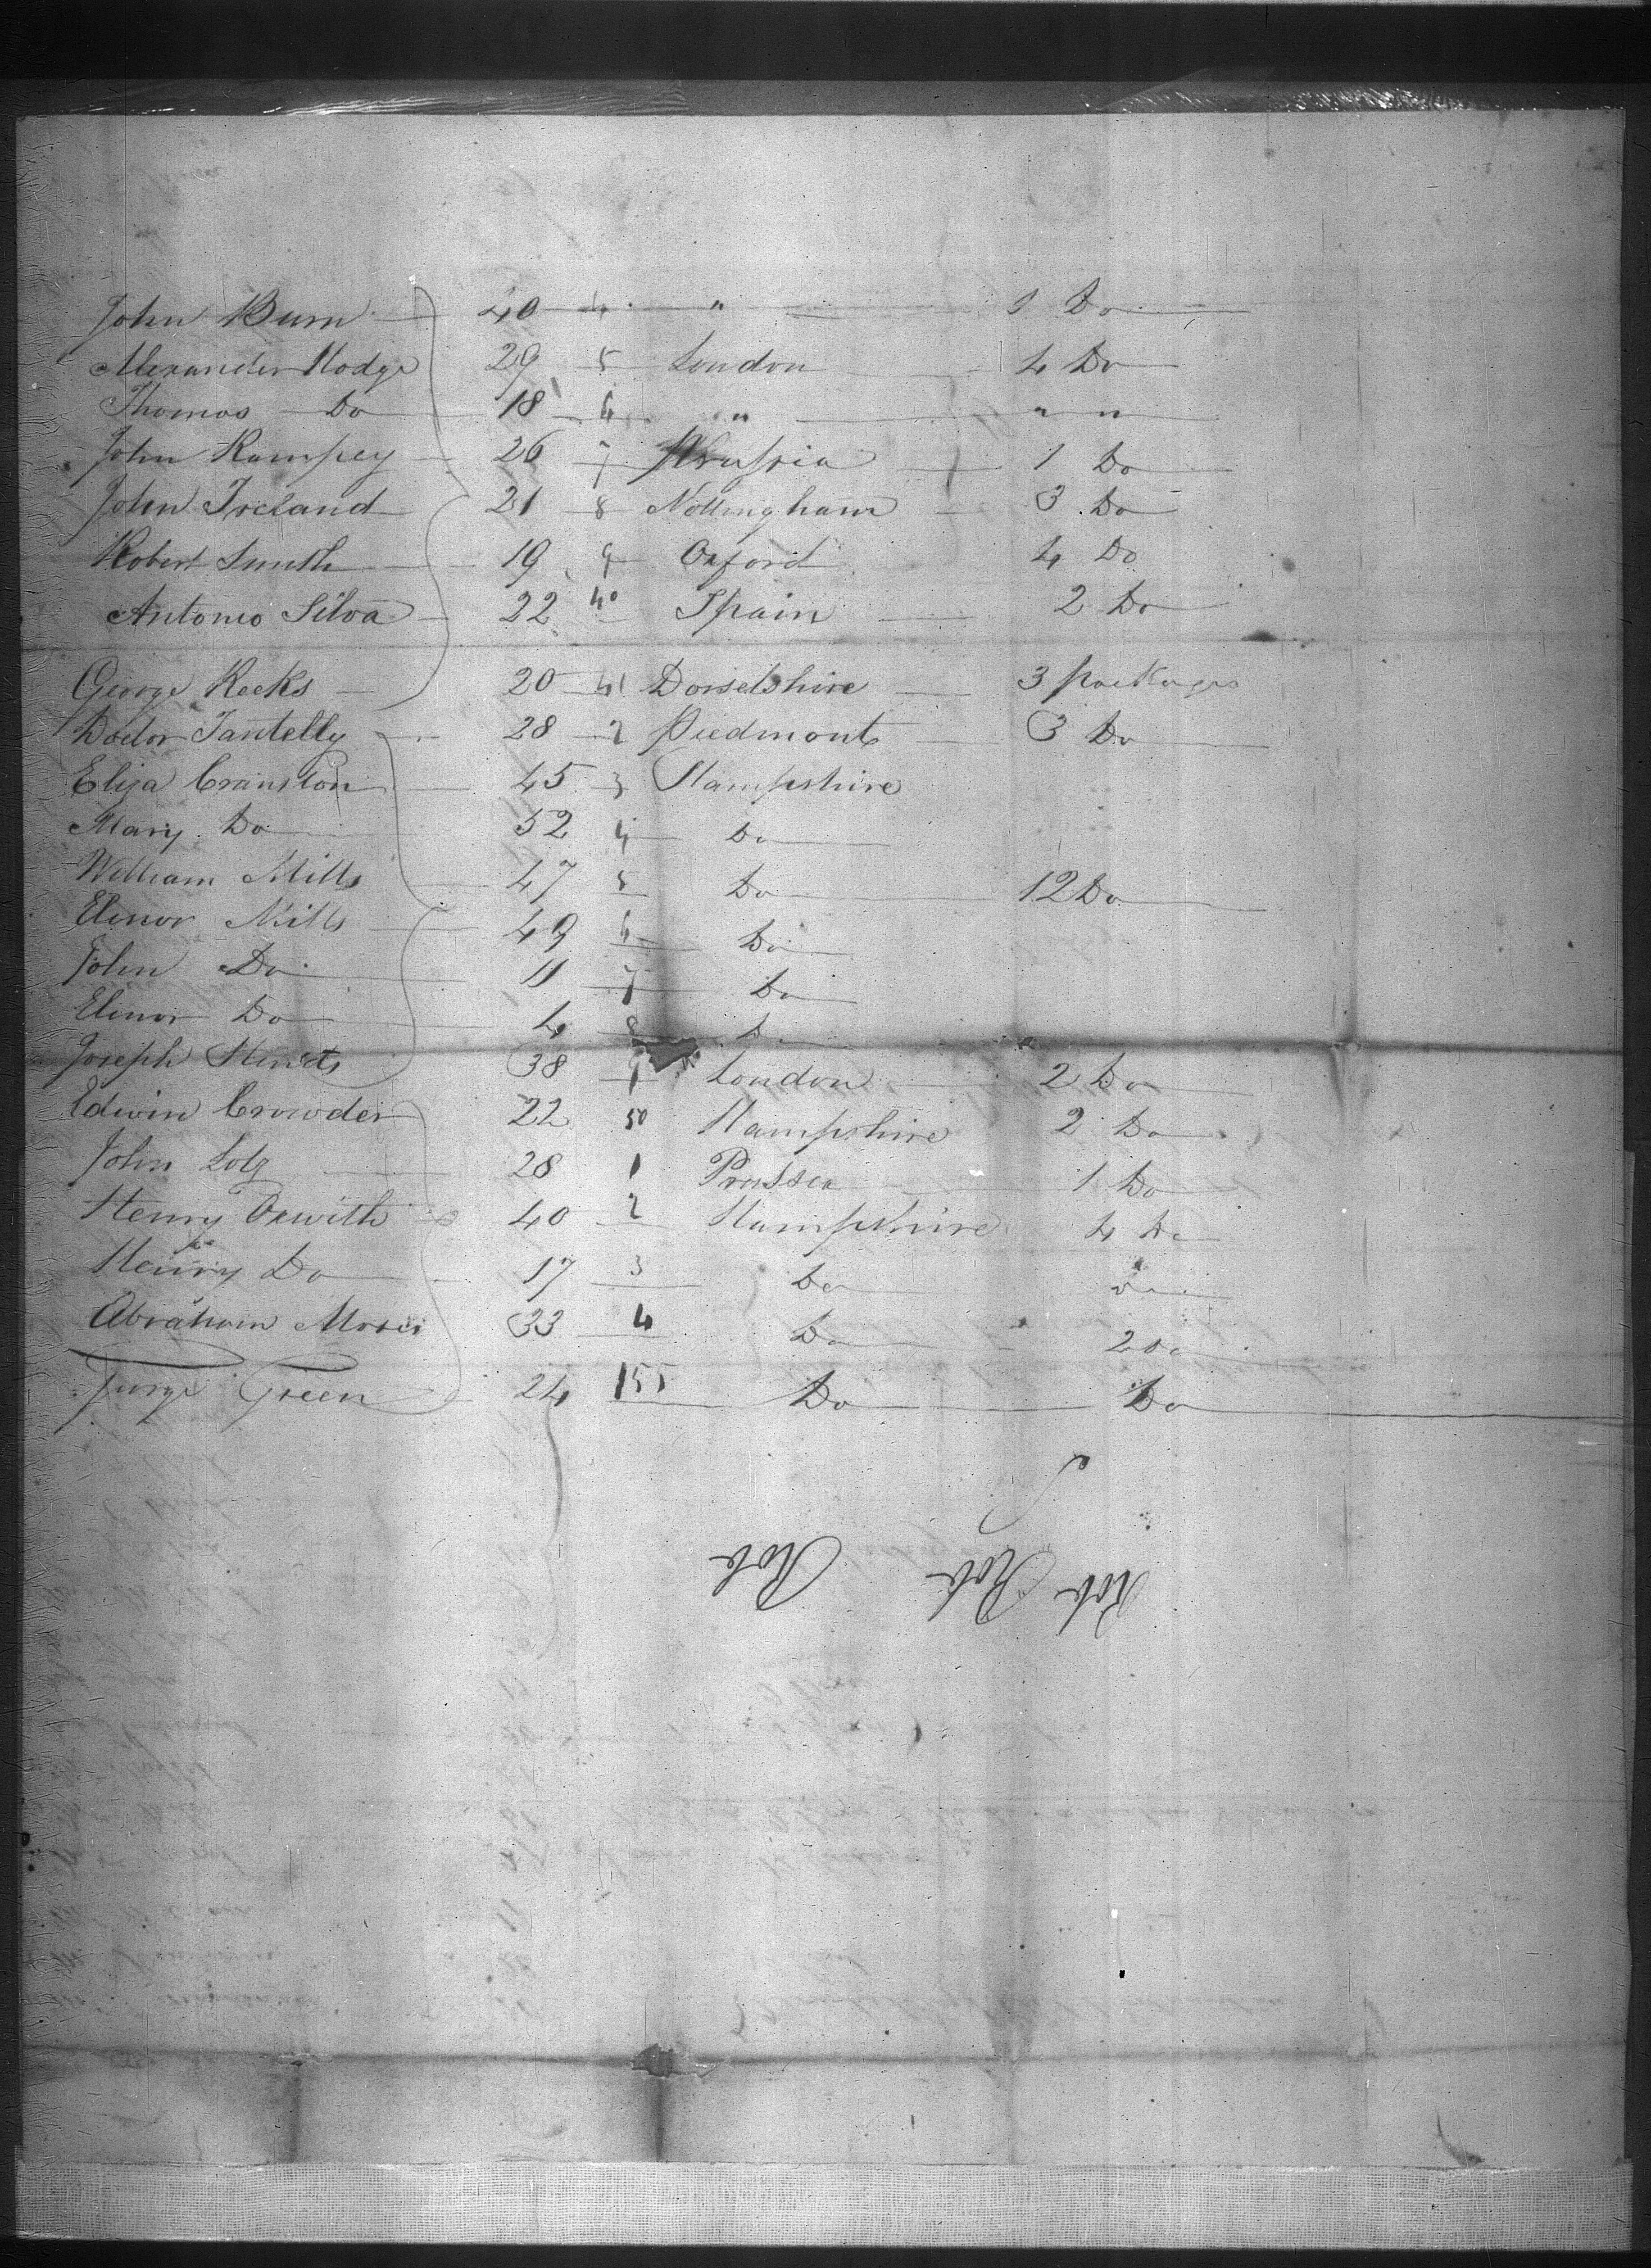 John Burn 40 4 " 1 Do
Alexander Hodge 29 5 London 4 Do
Thomas Do 18 6 " " "
John Rampey 26 7 Prussia 1 Do
John Ireland 21 8 Nottingham 3 Do
Robert Smith 19 9 Oxford 4 Do
Antonio Silva 22 40 Spain 2 Do
George Reeks 20 41 Dorsetshire 3 packages
Doctor Tantelly 28 2 Piedmont 3 Do
Eliza Cranston 45 3 Hampshire
Mary Do 52 4 Do
William Mills 47 5 Do 12 Do
Elinor Mills 49 6 Do
John Do 11 7 Do
Elinor Do 4 8 Do
Joseph 38 9 London 2 Do
Edwin Crowder 22 50 Hampshire 2 Do
John Lotz 28 1 Prussia 1 Do
Henry Oxwith 40 2 Hampshire 4 Do
Henry Do 17 3 Do
Abraham Moses 33 4 Do 2 Do
Green 24 155 Do Do
Rob Rob Rob